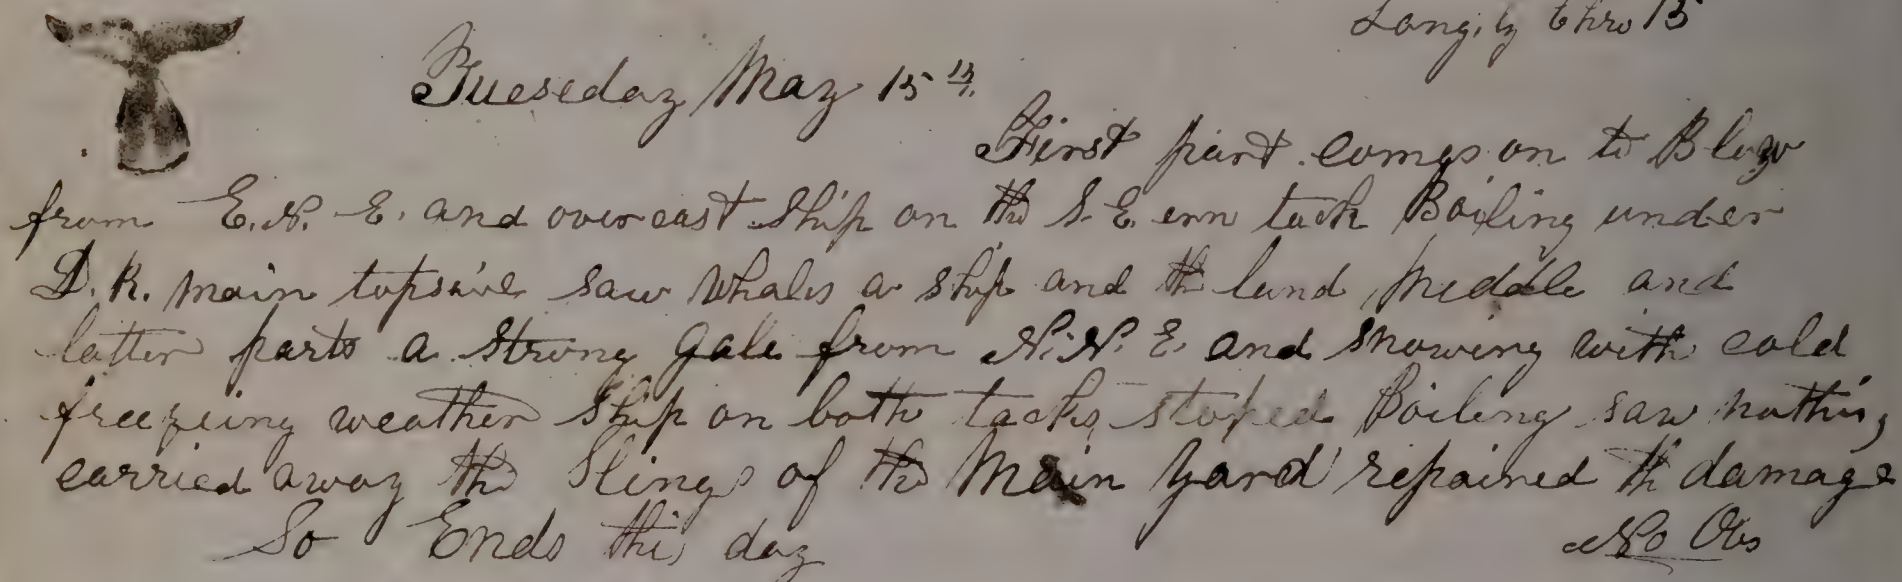 Longi, by Chro 15
Tueseday May 15th
First part comes on to Blow
from E.N.E. and overcast Ship on the S.E. ern tack Boiling under
D.R. main topsaile saw Whales a ship and th land Middle and
latter parts a strong gale from N.N.E and snowing with cold
freezeing weather Ship on both tacks, stoped Boiling saw nothing
carried away the Slings of the Main Yard repaired th damage
So Ends this day
No Obs